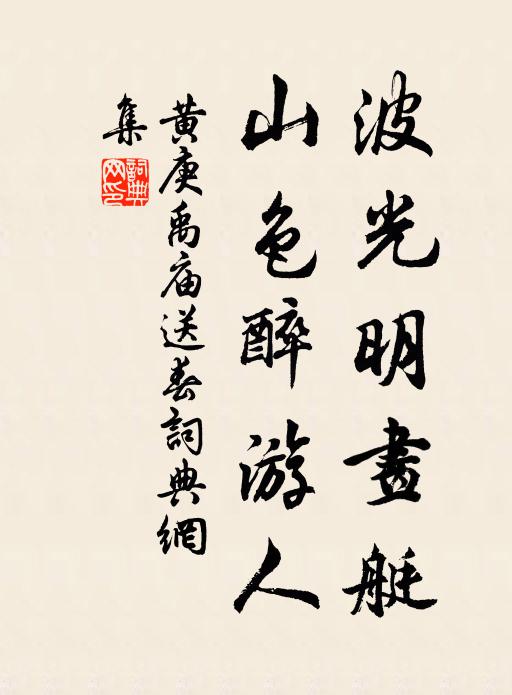 波光明畫艇
山色醉游人
黄庚禹庙送春詞典網
集
詞典网印